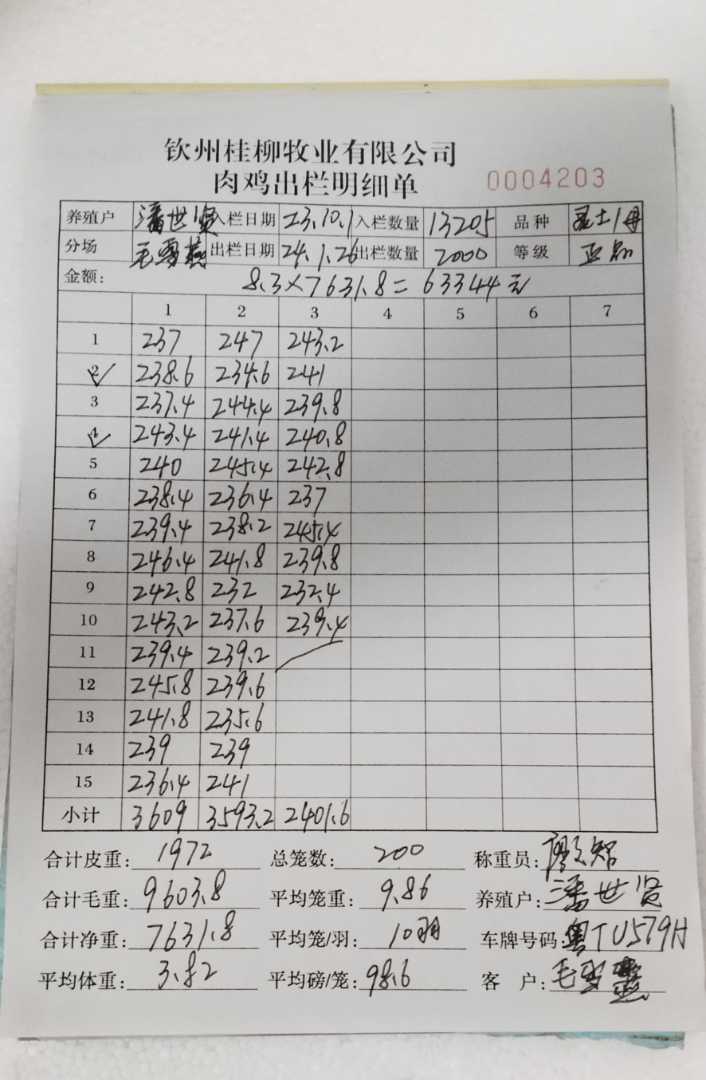 钦州桂柳牧业有限公司
肉鸡出栏明细单 0004203
养殖户 潘世贤 入栏日期 23.10.1 入栏数量 13205 品种
分场 出栏日期 24.1.26 出栏数量 2000 等级 正品
金额: 8.3×7631.8=63344元
1 2 3 4 5 6 7
1 237 247 243.2
2 238.6 234.6 241
3 237.4 244.4 239.8
4 243.4 241.4 240.8
5 240 245.4 242.8
6 238.4 236.4 237
7 239.4 238.2 245.4
8 246.4 241.8 239.8
9 242.8 232 232.4
10 243.2 237.6 239.4
11 239.4 239.2
12 245.8 239.6
13 241.8 235.6
14 239 239
15 236.4 241
小计 3609 3593.2 2401.6
合计皮重: 1972 总笼数: 200 称重员: 廖智
合计毛重: 9603.8 平均笼重: 9.86 养殖户: 潘世贤
合计净重: 7631.8 平均笼/羽: 10羽 车牌号码: 粤TU579H
平均体重: 3.82 平均磅/笼: 98.6 客户: